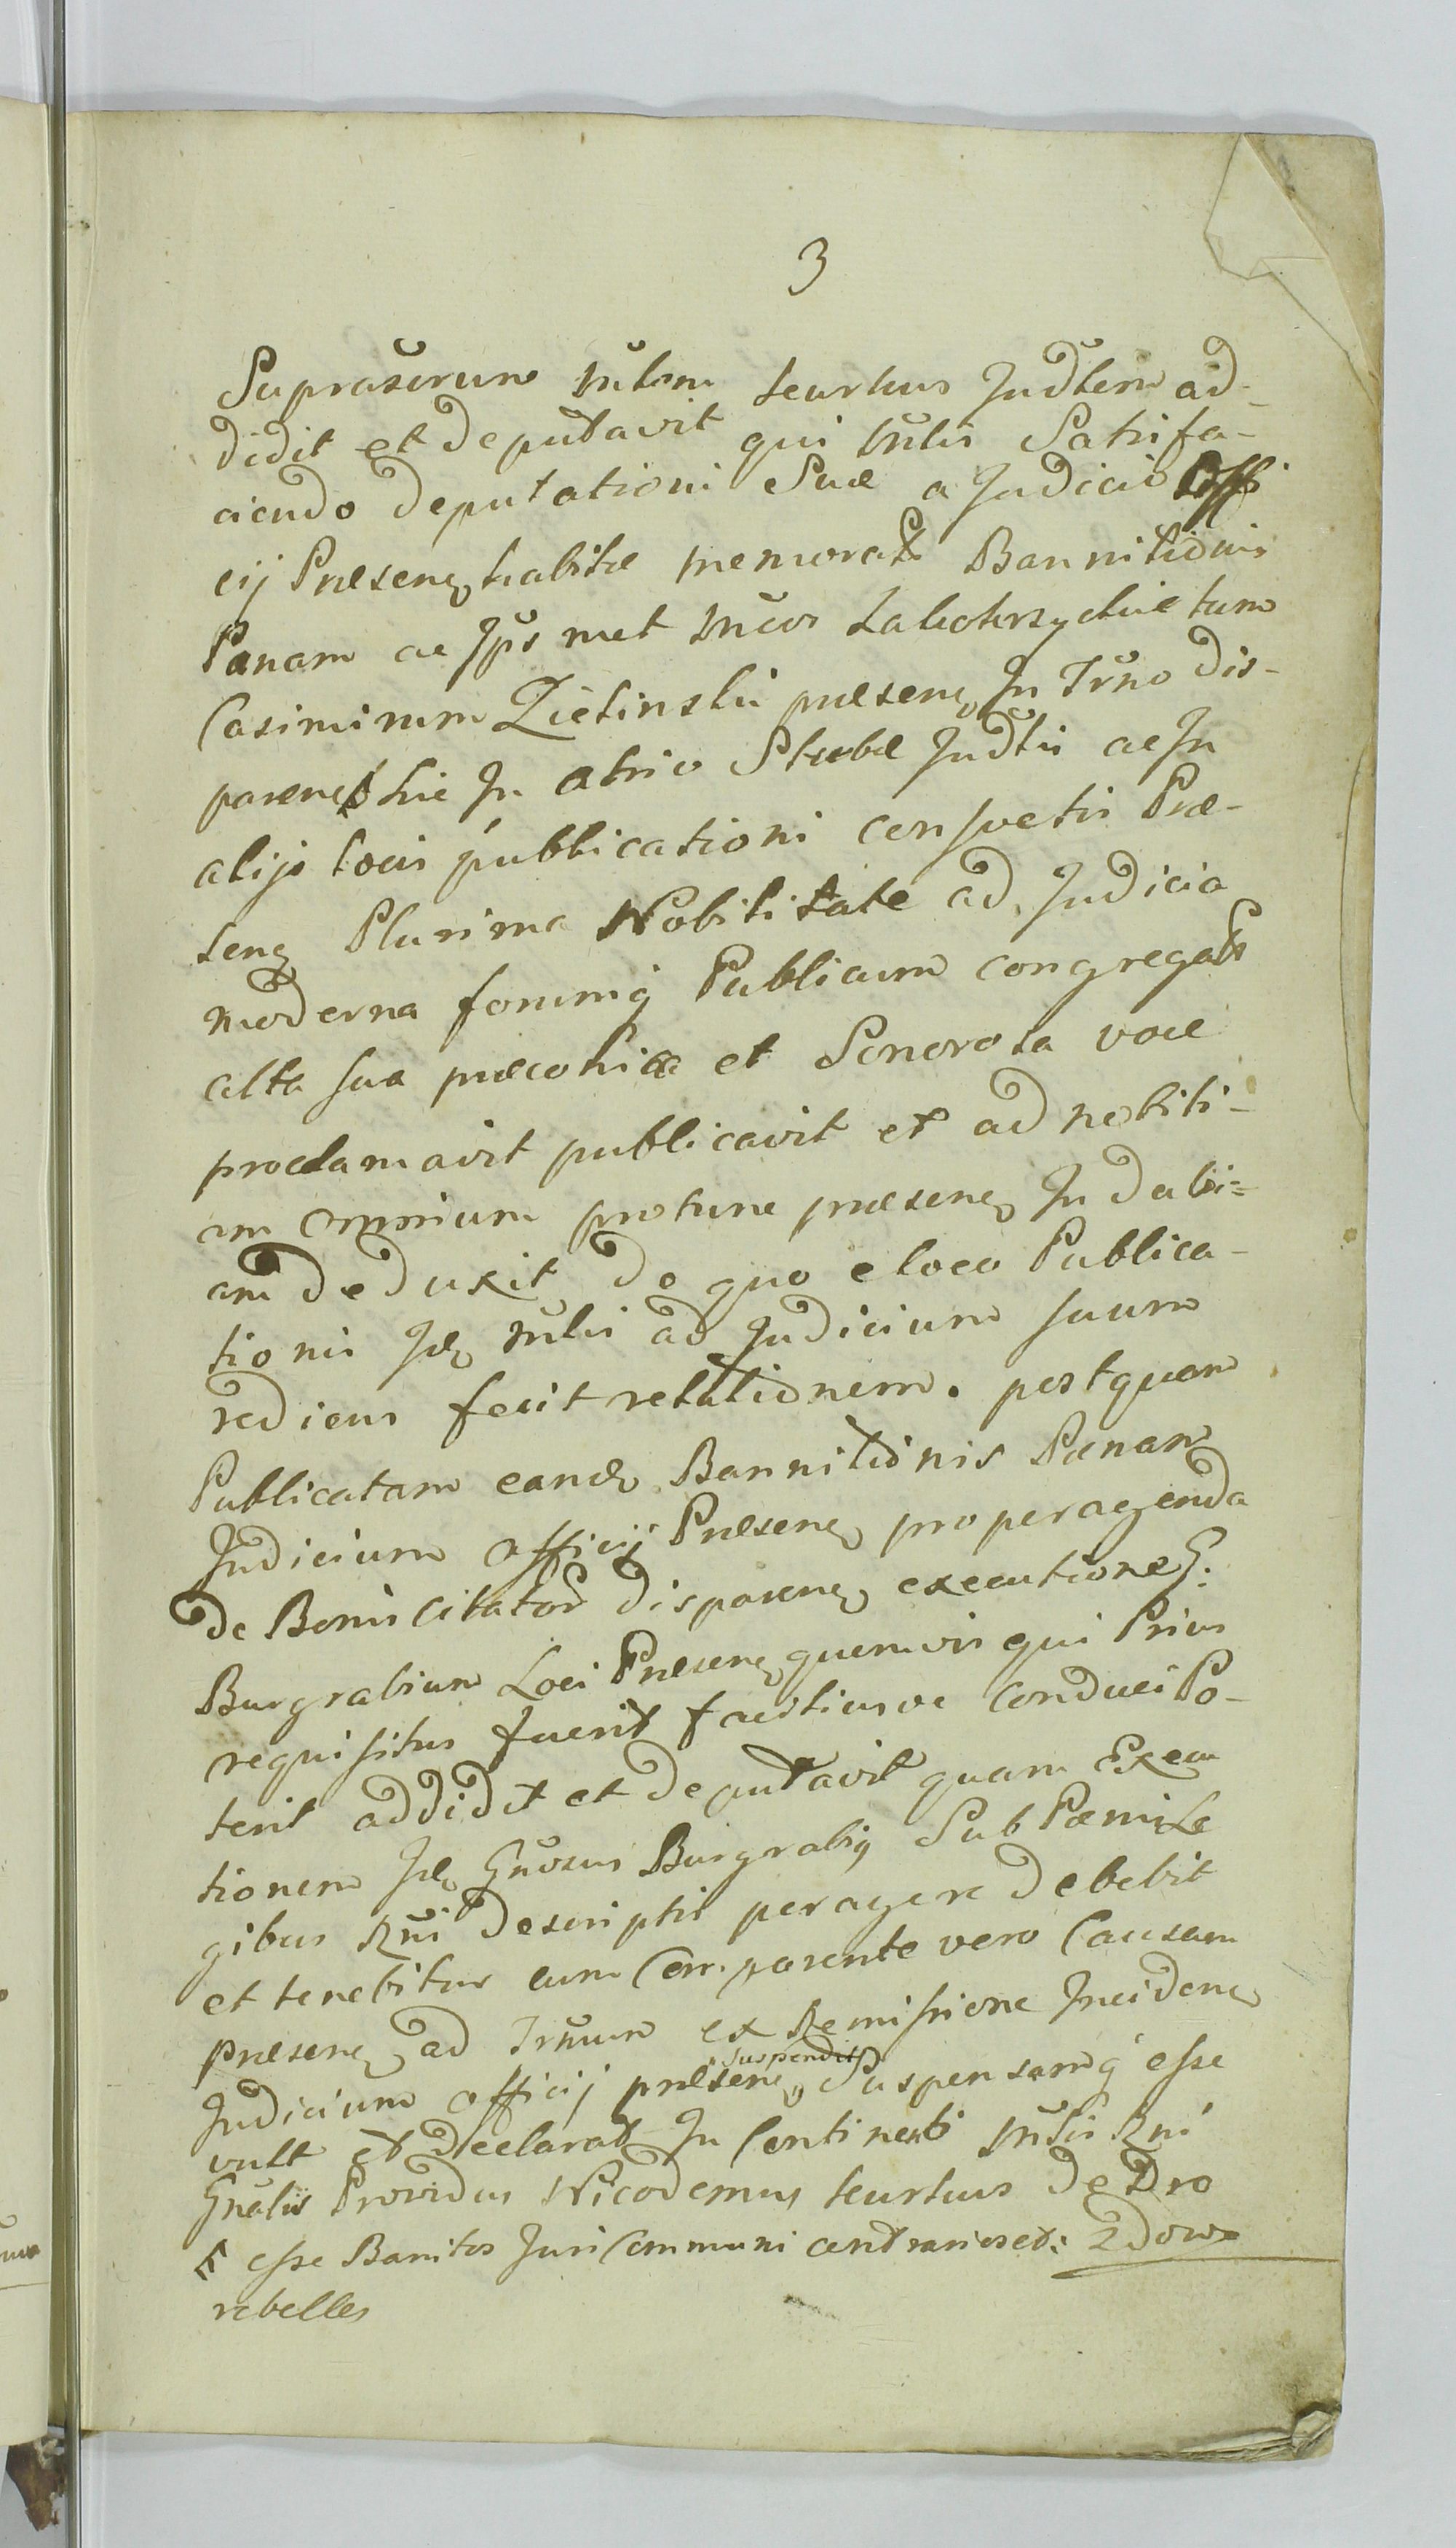 3
Suprascrum mlem teurtius Judtem ad-
didit et deputavit qui mlis Satisfa-
ciendo deputationi Suae a Judicio Offi
cij Praesenȩ habitae memorat Bannitionis
Panam ac Jps met
Casimirum Zietinski praesenȩ In Trno dis-
parenȩ hic In atrio Stubae Judtii ac In
alijs locis publicationi consvetis Prae-
senȩ Plurima Nobilitate ad Judicia
moderna forumq Publicum congregat
alta sua praeconica et Sonorosa voce
proclamavit publicavit et ad notiti-
am omnium protunc praesenȩ In dubi=
am deduxit de quo e loco Publica-
tionis Jdȩ mlis ad Judicium suum
rediens fecit relationem. postquam
Publicatam eandȩ Bannitionis Panam
Judicium officij Praesenȩ pro peragenda
de Bonis Citator disparenȩ executioneȩ.
Burgrabium Loci Praesenȩ quemvis qui Prius
requisitus fuerit faciliusve conduci Po-
terit addidit et deputavit quam Execu
tionem Jdȩ Gnosus Burgrabiȩ Sub Paenis Le
gibus Rni descriptis peragere debebit
et tenebitur cum Comparente vero Causam
praesenȩ ad Trnum ex Remissione Incidenȩ
suspendit
Judicium officij praesenȩ Suspensamq esse
vult et declarat In Continenti mlis Rni
Gnalis Providus Nicodemus teurtius de Dro
esse Banitos Juri Communi contrarios et: 2dowo
rebelles